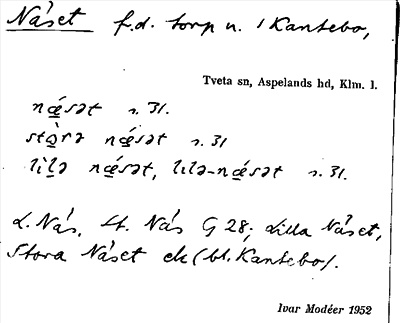 Näset f.d. torp u. 1 Kantebo,
Tveta sn, Aspelands hd, Klm. l.
nǽsət s. 31.
stɷ̀rə nǽsət s. 31
lìlə nǽsət, lɩlə-nǽsət s. 31.
L. Näs, St. Näs G 28; Lilla Näset,
Stora Näset ek (bl. Kantebo).
Ivar Modéer 1952